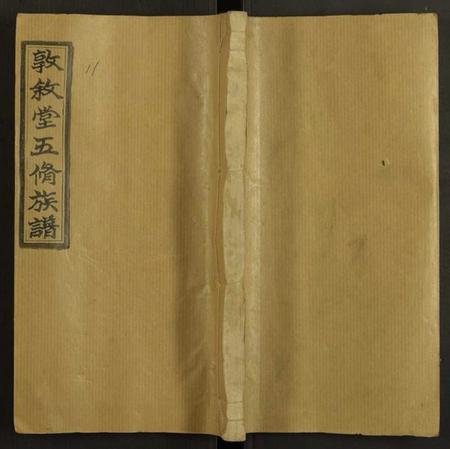 敦敘堂五脩族譜
11